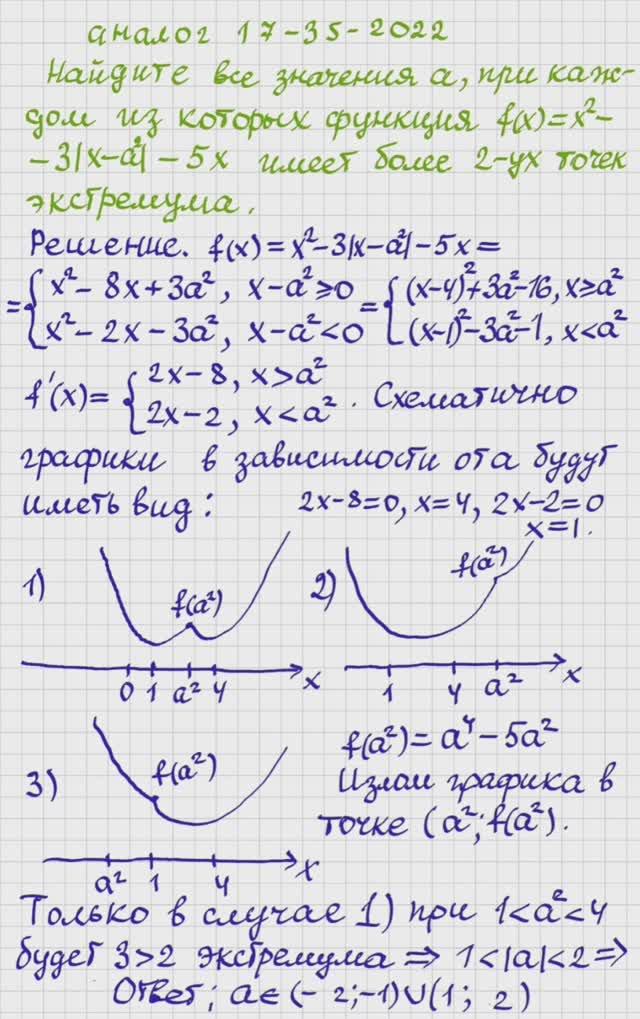 аналог 17-35-2022
Найдите все значения a, при каж-
дом из которых функция f(x)=x²-
-3|x-a²|-5x имеет более 2-ух точек
экстремума.
Решение. f(x)=x²-3|x-a²|-5x=
={x²-8x+3a², x-a²≥0 ={(x-4)²+3a²-16, x≥a²
{x²-2x-3a², x-a²<0 {(x-1)²-3a²-1, x<a²
f'(x)={2x-8, x>a²
{2x-2, x<a². Схематично
графики в зависимости от a будут
иметь вид: 2x-8=0, x=4, 2x-2=0
x=1.
1) f(a²)
0 1 a² 4 x
2) f(a²)
1 4 a² x
3) f(a²)
a² 1 4 x
f(a²)=a⁴-5a²
Излом графика в
точке (a²; f(a²).
Только в случае 1) при 1<a²<4
будет 3>2 экстремума ⇒ 1<|a|<2 ⇒
Ответ: a∈(-2;-1)∪(1; 2)